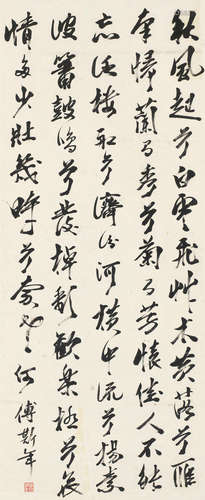 秋風起兮白雲飛艸木黃落兮雁
南歸蘭有秀兮菊有芳懷佳人不能
忘泛樓船兮濟汾河橫中流兮揚素
波簫鼓鳴兮發棹歌歡樂極兮哀
情多少壯幾時兮奈老何
傅斯年